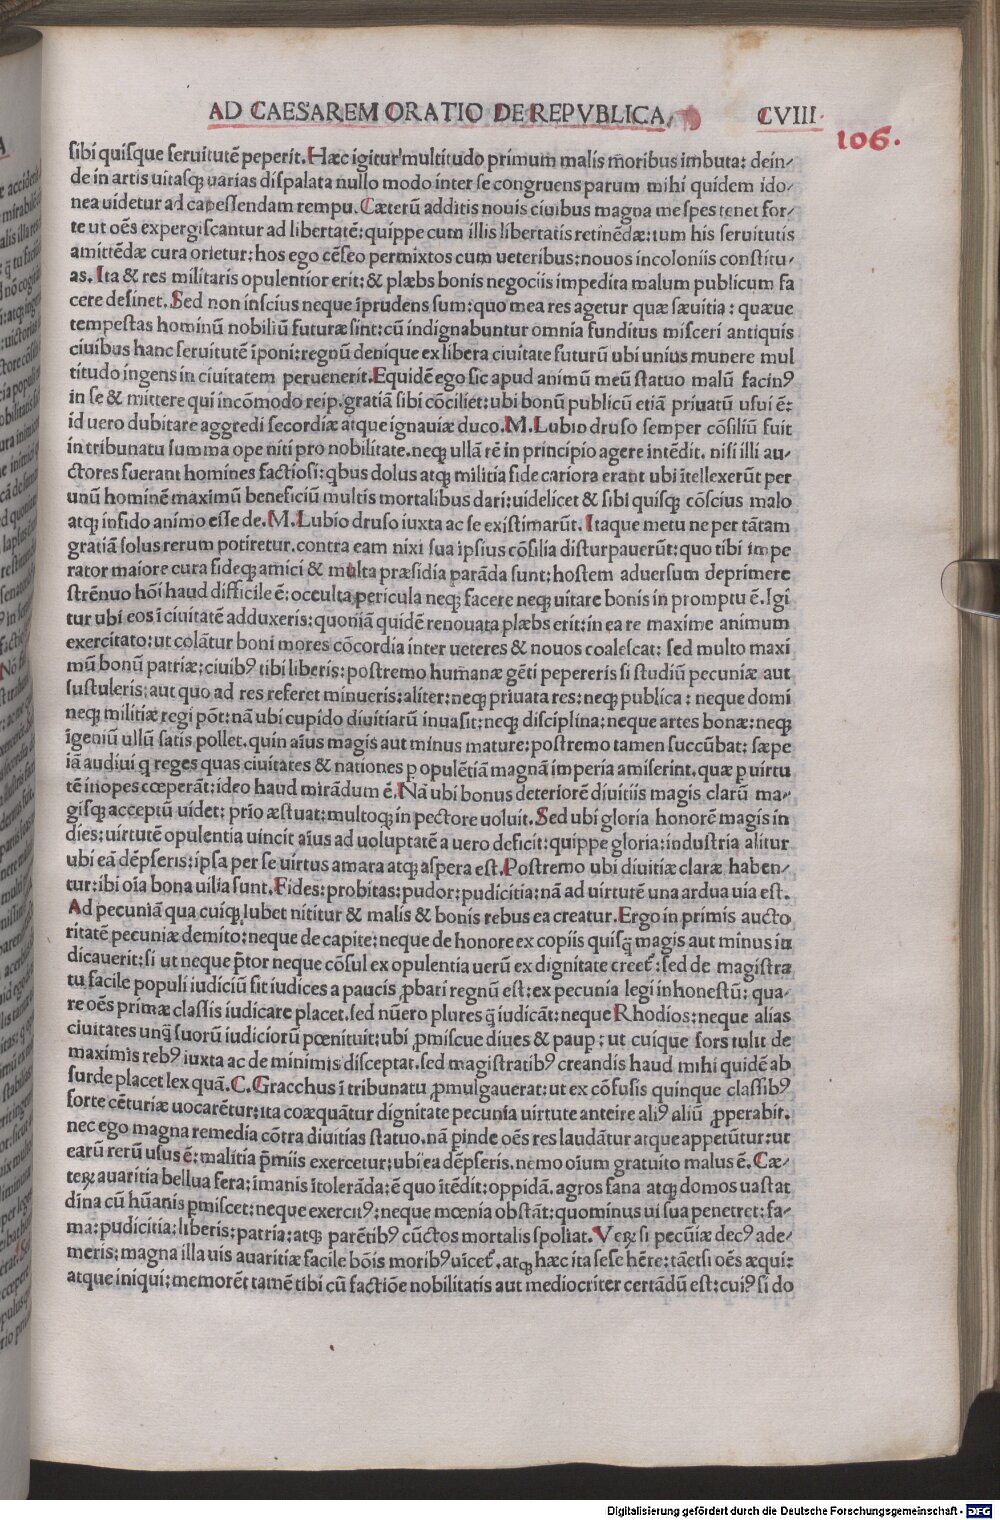 AD CAESAREM ORATIO DE REPVBLICA, CVIII.
106.
ſibi quiſque ſeruitutē peperit. Hæc igitur multitudo primum malis moribus imbuta: dein/
de in artis uitaſq; uarias diſpalata nullo modo inter ſe congruens parum mihi quidem ido/
nea uidetur ad capeſſendam rempu. Cæterū additis nouis ciuibus magna me ſpes tenet for/
te ut oēs expergiſcantur ad libertatē: quippe cum illis libertatis retinēdæ: tum his ſeruitutis
amittēdæ cura orietur: hos ego cēſeo permixtos cum ueteribus: nouos in coloniis conſtitu/
as. Ita & res militaris opulentior erit: & plæbs bonis negociis impedita malum publicum fa
cere deſinet. Sed non inſcius neque īprudens ſum: quo mea res agetur quæ ſæuitia: quæue
tempeſtas hominū nobiliū futuræ ſint: cū indignabuntur omnia funditus miſceri antiquis
ciuibus hanc ſeruitutē īponi: regnū denique ex libera ciuitate futurū ubi unius munere mul
titudo ingens in ciuitatem peruenerit. Equidē ego ſic apud animū meū ſtatuo malū facinꝰ
in ſe & mittere qui incōmodo reip. gratiā ſibi cōciliet: ubi bonū publicū etiā priuatū uſui ē:
id uero dubitare aggredi ſecordiæ atque ignauiæ duco. M. Lubio druſo ſemper cōſiliū fuit
in tribunatu ſumma ope niti pro nobilitate. neq; ullā rē in principio agere intēdit. niſi illi au/
ctores fuerant homines factioſi: qbus dolus atq; militia fide cariora erant ubi ītellexerūt per
unū hominē maximū beneficiū multis mortalibus dari: uidelicet & ſibi quiſq; cōſcius malo
atq; infido animo eſſe de. M. Lubio druſo iuxta ac ſe exiſtimarūt. Itaque metu ne per tātam
gratiā ſolus rerum potiretur. contra eam nixi ſua ipſius cōſilia diſturpauerūt: quo tibi impe
rator maiore cura fideq; amici & multa præſidia parāda ſunt: hoſtem aduerſum deprimere
ſtrēnuo hōi haud difficile ē: occulta pericula neq; facere neq; uitare bonis in promptu ē. Igi
tur ubi eos ī ciuitatē adduxeris: quoniā quidē renouata plæbs erit: in ea re maxime animum
exercitato: ut colātur boni mores cōcordia inter ueteres & nouos coaleſcat: ſed multo maxi
mū bonū patriæ: ciuibꝰ tibi liberis: poſtremo humanæ gēti pepereris ſi ſtudiū pecuniæ aut
ſuſtuleris: aut quo ad res referet minueris: aliter: neq; priuata res: neq; publica: neque domi
neq; militiæ regi pōt: nā ubi cupido diuitiarū inuaſit: neq; diſciplina: neque artes bonæ: neq;
īgeniū ullū ſatis pollet. quin aīus magis aut minus mature: poſtremo tamen ſuccūbat: ſæpe
iā audiui q reges quas ciuitates & nationes p opulētiā magnā imperia amiſerint. quæ p uirtu
tē inopes cœperāt: ideo haud mirādum ē. Nā ubi bonus deteriorē diuitiis magis clarū ma/
giſq; acceptū uidet: prio æſtuat: multoq; in pectore uoluit. Sed ubi gloria honorē magis in
dies: uirtutē opulentia uincit aīus ad uoluptatē a uero deficit: quippe gloria: induſtria alitur
ubi eā dēpſeris: ipſa per ſe uirtus amara atq; aſpera eſt. Poſtremo ubi diuitiæ claræ haben/
tur: ibi oīa bona uilia ſunt. Fides: probitas: pudor: pudicitia: nā ad uirtutē una ardua uia eſt.
Ad pecuniā qua cuiq; lubet nititur & malis & bonis rebus ea creatur. Ergo in primis aucto
ritatē pecuniæ demito: neque de capite: neque de honore ex copiis quiſq̄ magis aut minus iu
dicauerit: ſi ut neque p̄tor neque cōſul ex opulentia uerū ex dignitate creet̄: ſed de magiſtra
tu facile populi iudiciū fit iudices a paucis ꝓbari regnū eſt: ex pecunia legi inhoneſtū: qua/
re oēs primæ claſſis iudicare placet. ſed nūero plures q̄ iudicāt: neque Rhodios: neque alias
ciuitates unq̄ ſuorū iudiciorū pœnituit: ubi ꝓmiſcue diues & paup: ut cuique fors tulit de
maximis rebꝰ iuxta ac de minimis diſceptat. ſed magiſtratibꝰ creandis haud mihi quidē ab
ſurde placet lex quā. C. Gracchus ī tribunatu ꝓmulgauerat: ut ex cōfuſis quinque claſſibꝰ
ſorte cēturiæ uocarētur: ita coæquātur dignitate pecunia uirtute anteire aliꝰ aliū ꝓperabit.
nec ego magna remedia cōtra diuitias ſtatuo. nā pinde oēs res laudātur atque appetūtur: ut
earū rerū uſus ē: malitia p̄miis exercetur: ubi ea dēpſeris. nemo oīum gratuito malus ē. Cæ/
teꝝ auaritia bellua fera: īmanis ītolerāda: ē quo ītēdit: oppidā. agros fana atq; domos uaſtat
diīna cū hūanis pmiſcet: neque exercitꝰ: neque mœnia obſtāt: quominus ui ſua penetret: fa/
ma: pudicitia: liberis: patria: atq; parētibꝰ cūctos mortalis ſpoliat. Veꝝ ſi pecūiæ decꝰ ade/
meris: magna illa uis auaritiæ facile bōis moribꝰ uīcet̄. atq; hæc ita ſeſe hēre: tāetſi oēs æqui:
atque iniqui: memorēt tamē tibi cū factiōe nobilitatis aut mediocriter certādū eſt: cuiꝰ ſi do
Digitalisierung gefördert durch die Deutsche Forschungsgemeinschaft - DFG